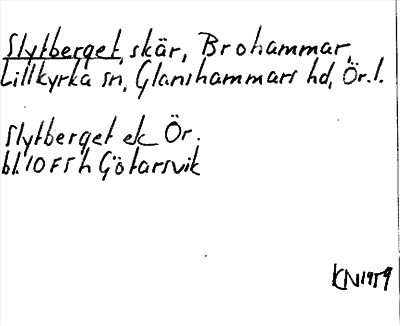 Slytberget, skär, Brohammar,
Lillkyrka sn, Glanshammars hd, Ör. l.
Slytberget ek Ör.
bl. 10 F 5 h Götarsvik
KN 1959